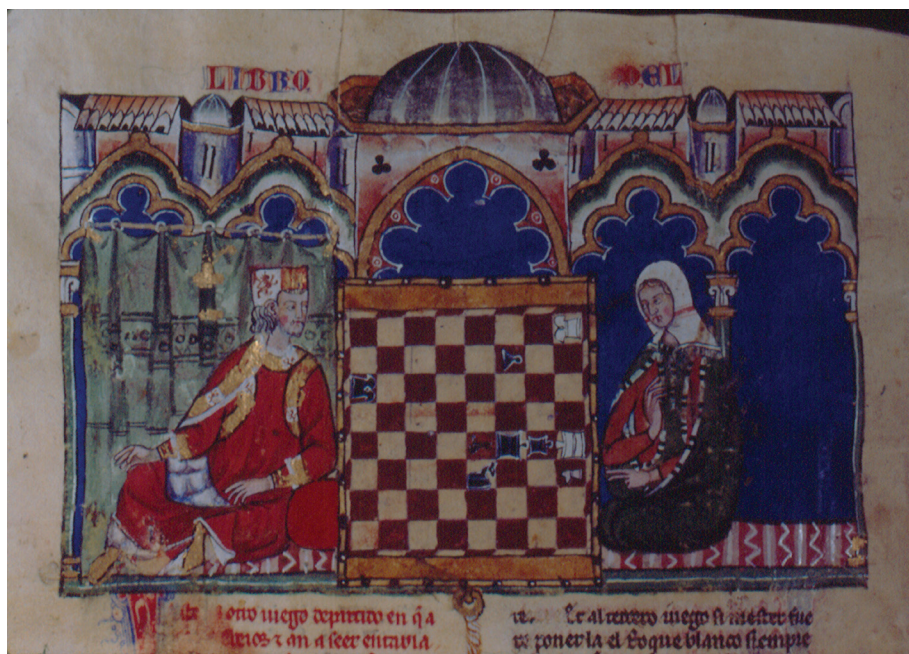 LIBRO DEL
otro iuego departido en q̃ a
&iios ⁊ an a seer entabla
re. Et al tercero iuego si mester fue
re poner la el Roque blanco siempre